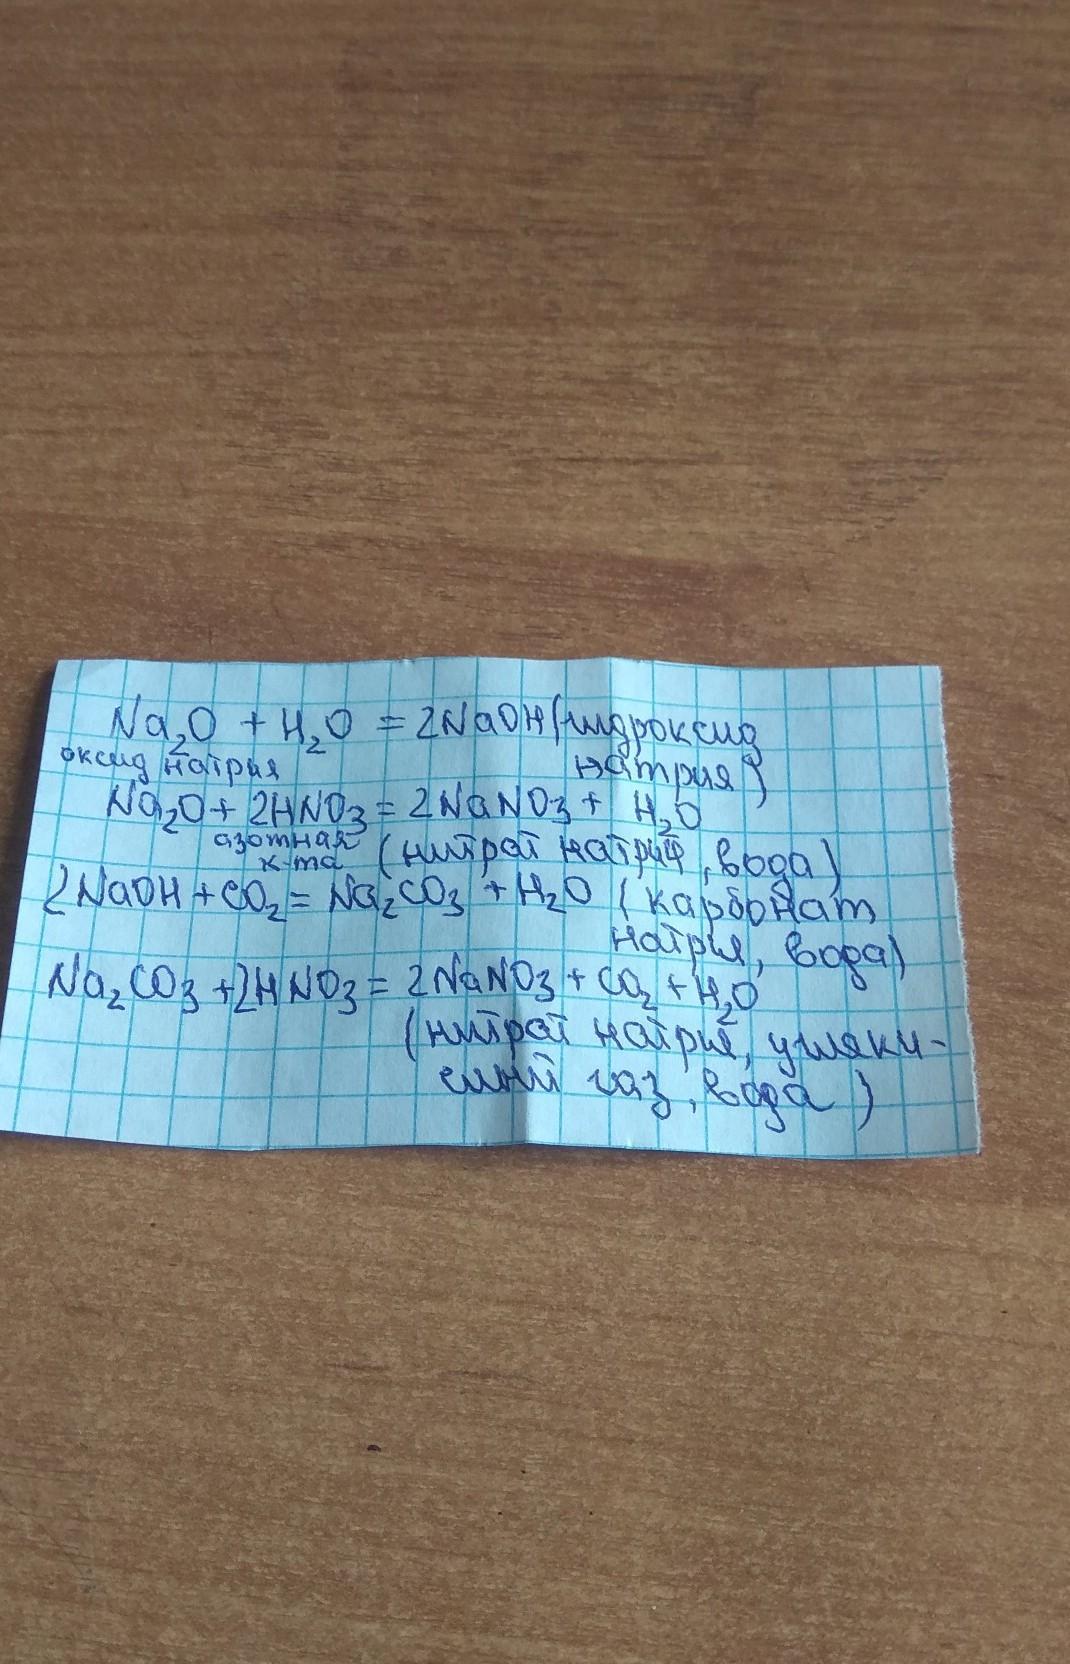 Na₂O + H₂O = 2NaOH (гидроксид
оксид натрия натрия)
Na₂O + 2HNO₃ = 2NaNO₃ + H₂O
азотная
к-та (нитрат натрия, вода)
2NaOH + CO₂ = Na₂CO₃ + H₂O (карбонат
натрия, вода)
Na₂CO₃ + 2HNO₃ = 2NaNO₃ + CO₂ + H₂O
(нитрат натрия,
газ, вода)